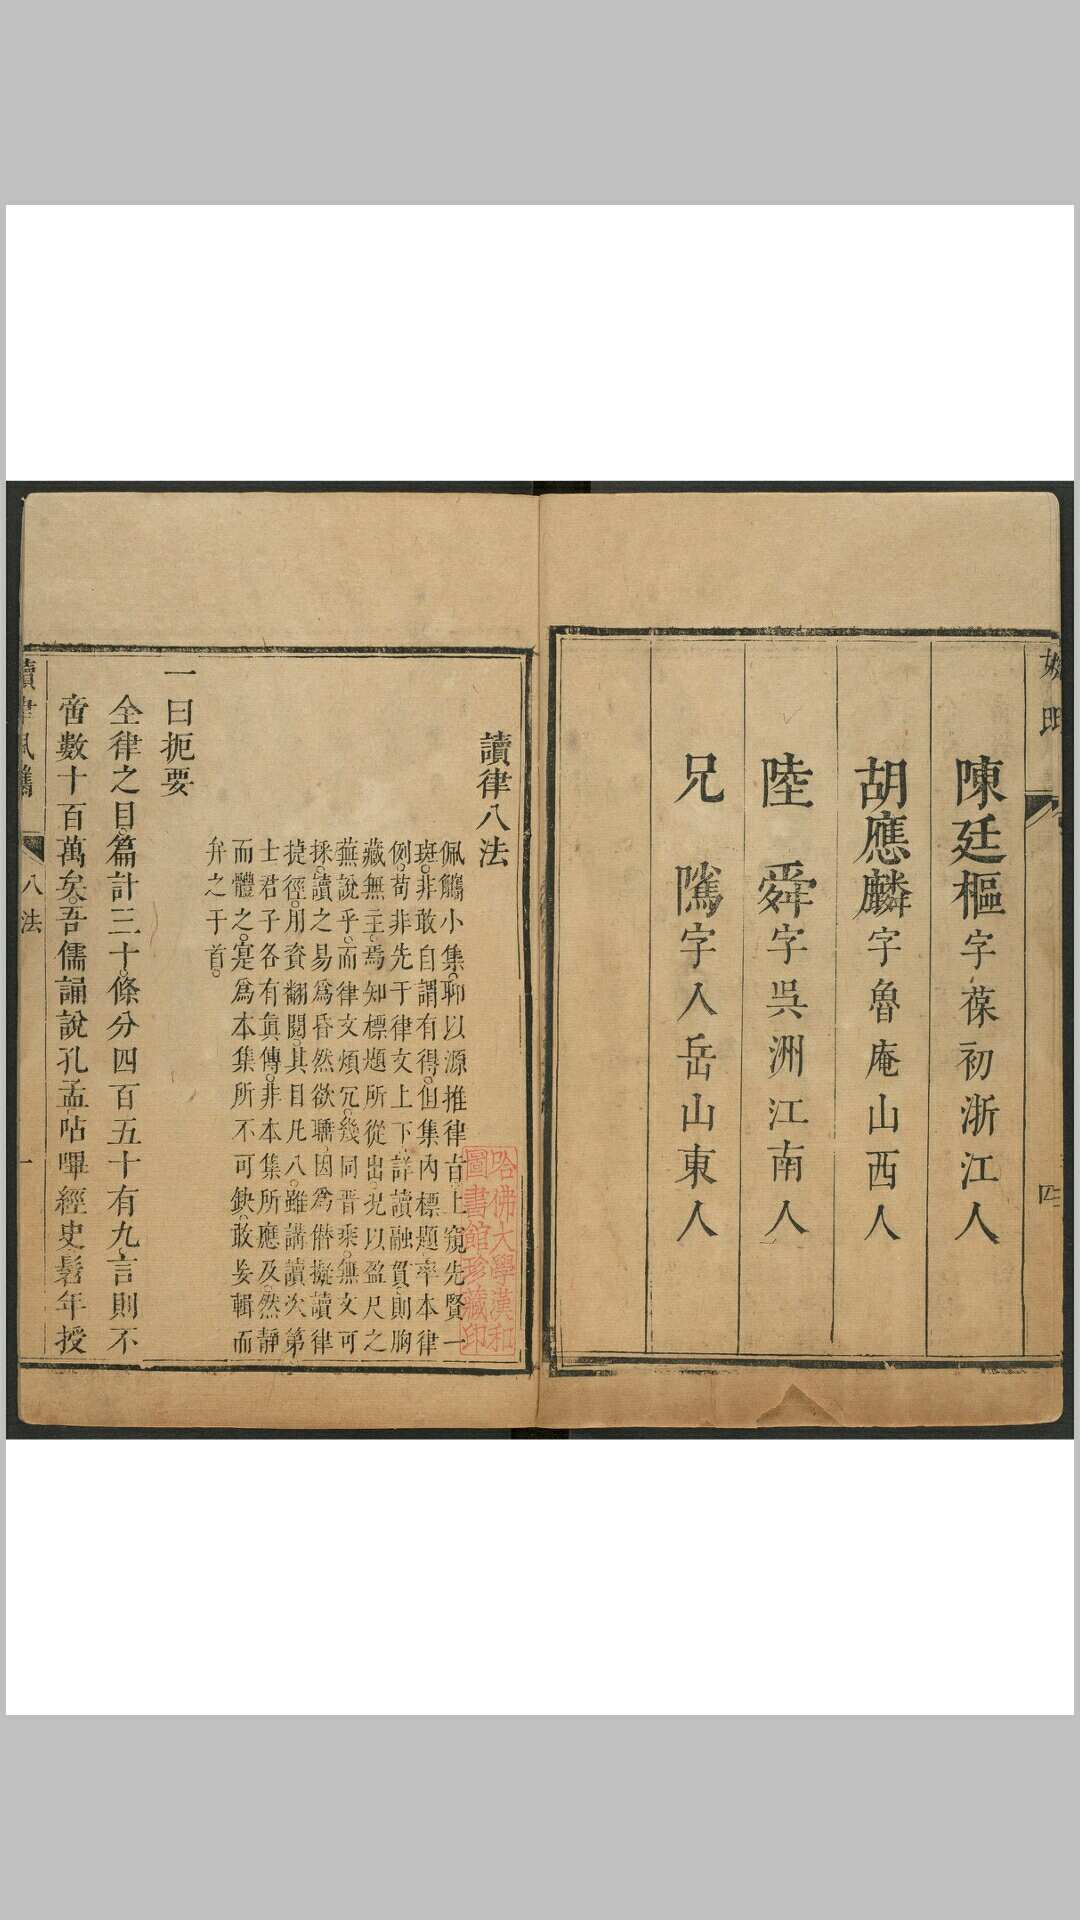 陳廷樞字葆初浙江人
胡應麟字魯庵山西人
陸舜字吳洲江南人
兄隲字人岳山東人
四
讀律八法
佩觿小集聊以源推律旨上窺先賢一
斑非敢自謂有得但集內標題率本律
例苟非先于律文上下詳讀融貫則胸
藏無主焉知標題所從出況以盈尺之
蕪說乎而律文煩冗幾同晋乘無文可
採讀之易為昏然欲聽因為僭擬讀律
捷徑用資翻閱其目凡八雖講讀次第
士君子各有眞傳非本集所應及然靜
而體之寔為本集所不可缺敢妄輯而
弁之于首
一曰扼要
全律之目篇計三十條分四百五十有九言則不
啻數十百萬矣吾儒誦說孔孟呫嗶經史髫年授
八法
一
哈佛大學漢和
圖書館珍藏印